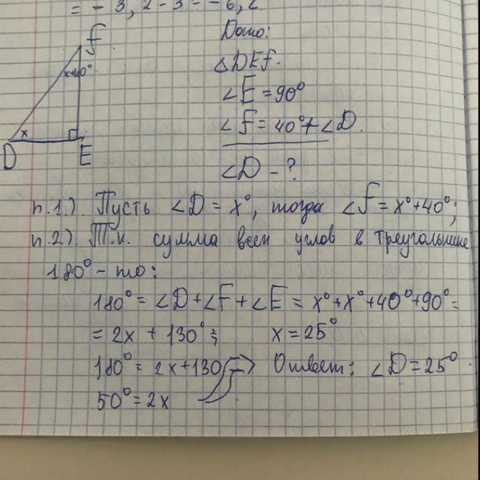 = - 3,2 - 3 = - 6,2
Дано:
△DEF.
∠E = 90°
∠F = 40° + ∠D.
∠D - ?
F
x+40°
x
D
E
п.1.) Пусть ∠D = x°, тогда ∠F = x°+40°;
п.2.) Т.к. сумма всех углов в треугольнике
180° - то:
180° = ∠D + ∠F + ∠E = x° + x° + 40° + 90° =
= 2x + 130°; x = 25°
180° = 2x + 130 Ответ: ∠D = 25°.
50° = 2x